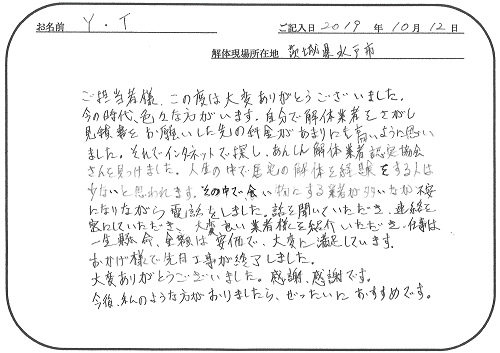 お名前 Y・T ご記入日 2019 年 10 月 12 日
解体現場所在地 茨城県水戸市
ご担当者様、この度は大変ありがとうございました。
今の時代、色々な方がいます。自分で解体業者をさがし
見積書をお願いした先の料金があまりにも高いように思い
ました。それでインターネットで探し、あんしん解体業者認定協会
さんを見つけました。人生の中で居宅の解体を経験をする人は
少ないと思われます。その中で食い物にする業者が多いなか不安
になりながら電話をしました。話を聞いていただき、連絡を
密にしていただき、大変良い業者様を紹介いただき、仕事は
一生懸命、金額は安価で、大変に満足しています。
おかげ様で先日工事が終了しました。
大変ありがとうございました。感謝、感謝です。
今後、私のような方がおりましたら、ぜったいにおすすめです。